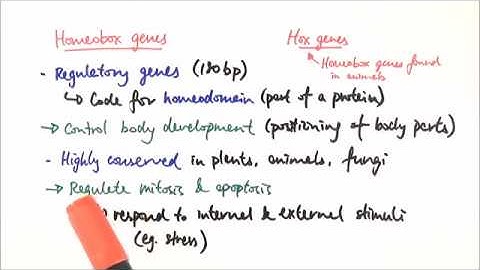 Homeobox genes
Hox genes
Homeobox genes found
in animals
- Regulatory genes (180bp)
↳ Code for homeodomain (part of a protein)
→ Control body development (positioning of body parts)
- Highly conserved in plants, animals, fungi
→ Regulate mitosis & apoptosis
respond to internal & external stimuli
(eg. stress)